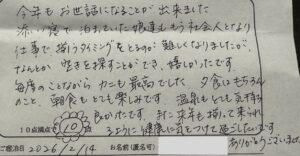 今年もお世話になることが出来ました
添い寝で泊まっていた娘達ももう社会人となり
仕事で揃うタイミングをとるのが難しくなりましたが、
なんとか空きを探すことができ、嬉しかったです
毎度のことながらカニも最高でした 夕食はもちろん
のこと、朝食もとても楽しみです 温泉もとても気持ち
良かったです また来年も揃って来られ
10点満点で 10点 るように健康に気をつけて過ごしたいです
ありがとうございます
ご宿泊日 2026/2/14 お名前(匿名可)